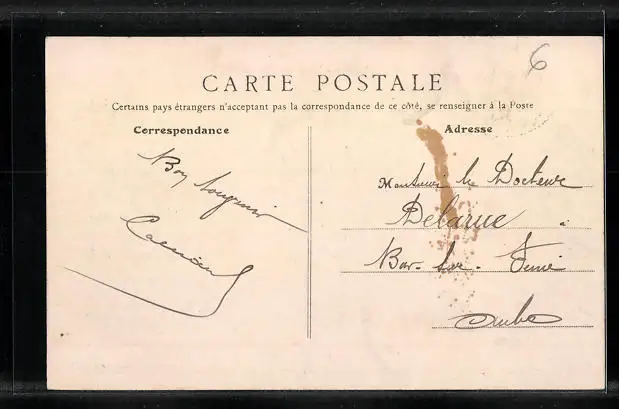 6
CARTE POSTALE
Certains pays étrangers n'acceptent pas la correspondance de ce côté, se renseigner à la Poste
Correspondance
Adresse
Bon souvenir
Monsieur le Docteur
Delarue
Bar-sur-Seine
Aube